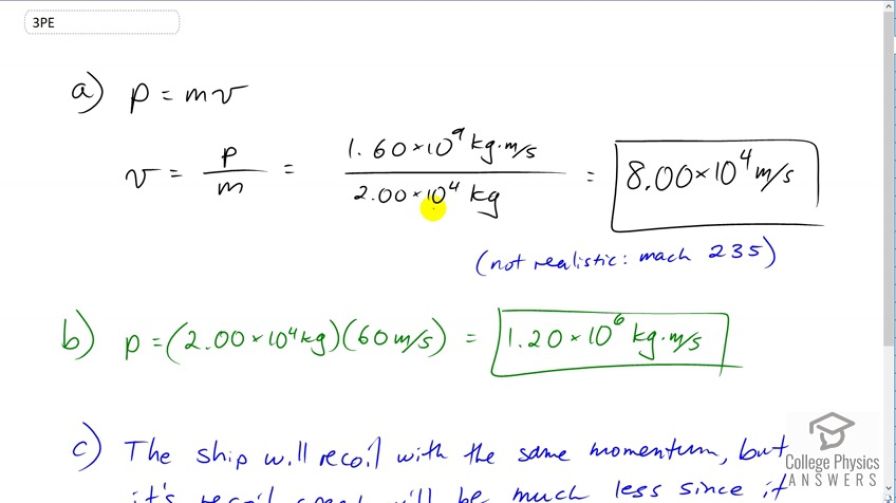 3PE
a) p = mv
v = p/m = 1.60×10⁹ kg·m/s / 2.00×10⁴ kg = 8.00×10⁴ m/s
(not realistic: mach 235)
b) p = (2.00×10⁴ kg)(60 m/s) = 1.20×10⁶ kg·m/s
c) The ship will recoil with the same momentum, but
it's recoil speed will be much less since it
College Physics
ANSWERS